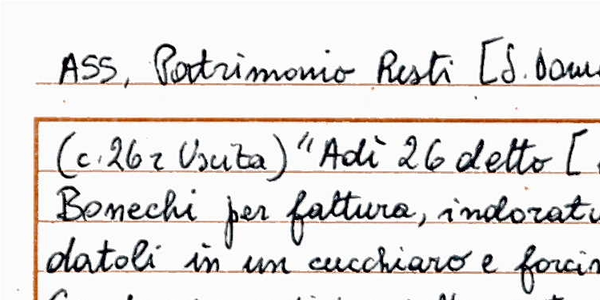 ASS, Patrimonio Resti [S. Dom
(c. 26r Uscita) "Adì 26 detto [
Bonechi per fattura, indoratu
datoli in un cucchiaro e forcin